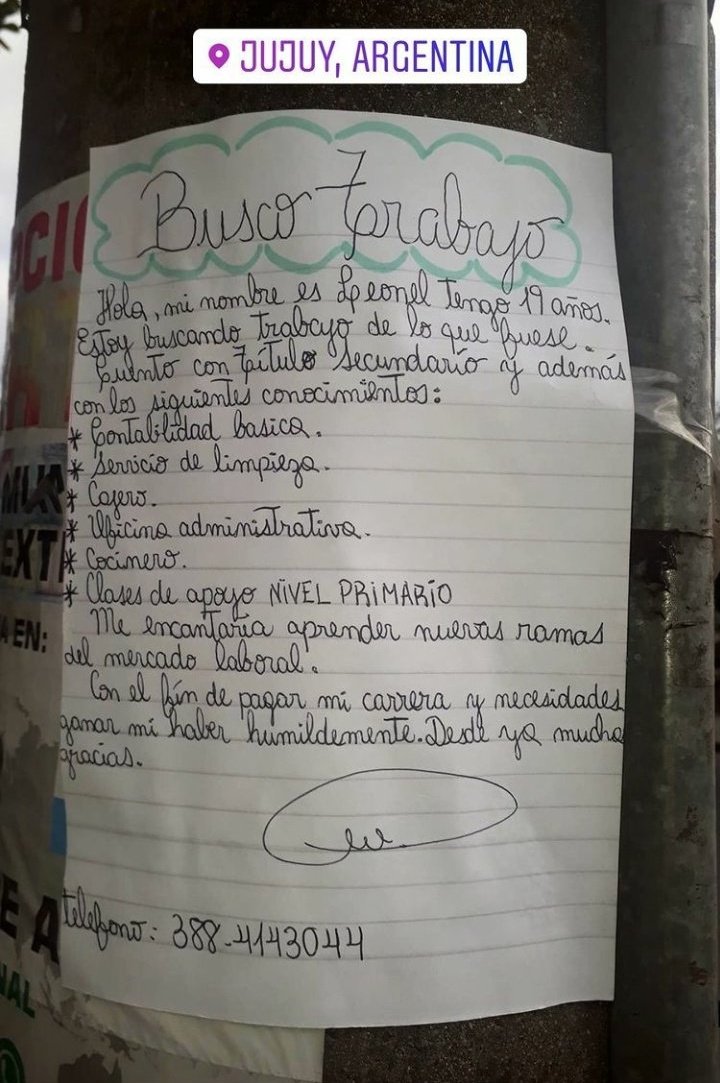 JUJUY, ARGENTINA
Busco Trabajo
Hola, mi nombre es Leonel Tengo 19 años.
Estoy buscando trabajo de lo que fuese.
Cuento con Título Secundario y además
con los siguientes conocimientos:
* Contabilidad basica.
* Servicio de limpieza.
* Cajero.
* Oficina administrativa.
* Cocinero.
* Clases de apoyo NIVEL PRIMARIO
Me encantaría aprender nuevas ramas
del mercado laboral.
Con el fin de pagar mi carrera y necesidades
ganar mi haber humildemente. Desde ya mucha
gracias.
telefono: 388-4143044
EXTI
A EN:
E A
NAL